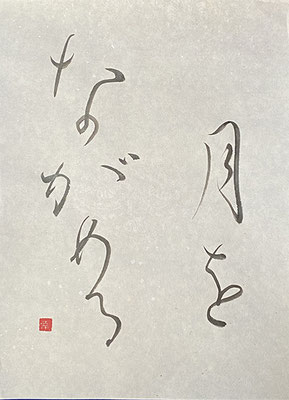 月を
ながめる